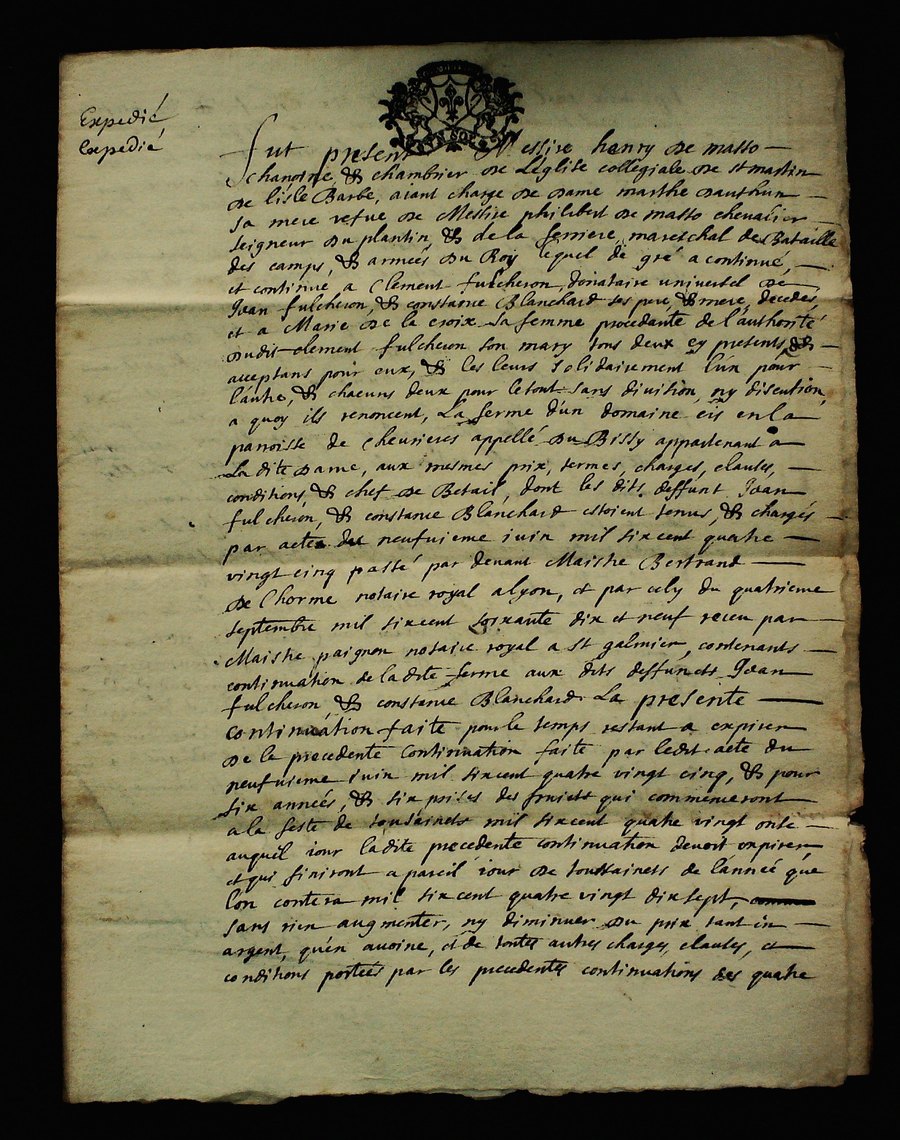 Expedié
Expedié
UN SOL
Fut present Messire henry de masso
chanoine & chambrier de L'eglise collegiale de st martin
de l'isle Barbe, aiant charge de dame marthe
sa mere vefue de Messire philibert de masso chevalier
seigneur du plantin, & de la ferriere, mareschal des Bataille
des camps, & armées du Roy lequel de gré a continué,
et continue a Clement fulcheron, donataire universel de
Jean fulcheron, & constance Blanchard ses pere, & mere, decedes,
et a Marie de la croix sa femme procedante de l'authorité
dudit clement fulcheron son mary tous deux cy presents &
acceptans pour eux, & les leurs solidairement l'un pour
l'autre, & chacuns deux pour le tout sans division, ny discution,
a quoy ils renoncent, La ferme d'un domaine cis en la
paroisse de Cheurieres appellé du Bissy appartenant a
La dite dame, aux mesmes prix, termes, charges, clauses,
conditions, & chef de Betail, dont les dits deffunt Jean
fulcheron, & constance Blanchard estoient tenus, & chargés
par acte du neufuieme iuin mil sixcent quatre
vingt cinq passé par devant Maistre Bertrand
de Lhorme notaire royal a lyon, et par cely du quatrieme
septembre mil sixcent soixante dix et neuf receu par
Maistre paignon notaire royal a st galmier, contenants
continuation de la dite ferme aux dits deffuncts Jean
fulcheron, & constance Blanchard La presente
continuation faite pour le temps restant a expirer
de la precedente Continuation faite par ledit acte du
neufuieme iuin mil sixcent quatre vingt cinq, & pour
six années, & six prises des fruicts qui commenceront
a la feste de toussaincts mil sixcent quatre vingt onse
auquel iour ladite precedente continuation devoit expirer
et qui finiront a pareil iour de toussaincts de l'année que
lon contera mil sixcent quatre vingt dix sept,
sans rien augmenter, ny diminuer du prix tant en
argent, qu'en avoine, et de toutes autres charges, clauses, et
conditions portées par les precedentes continuations des quatre